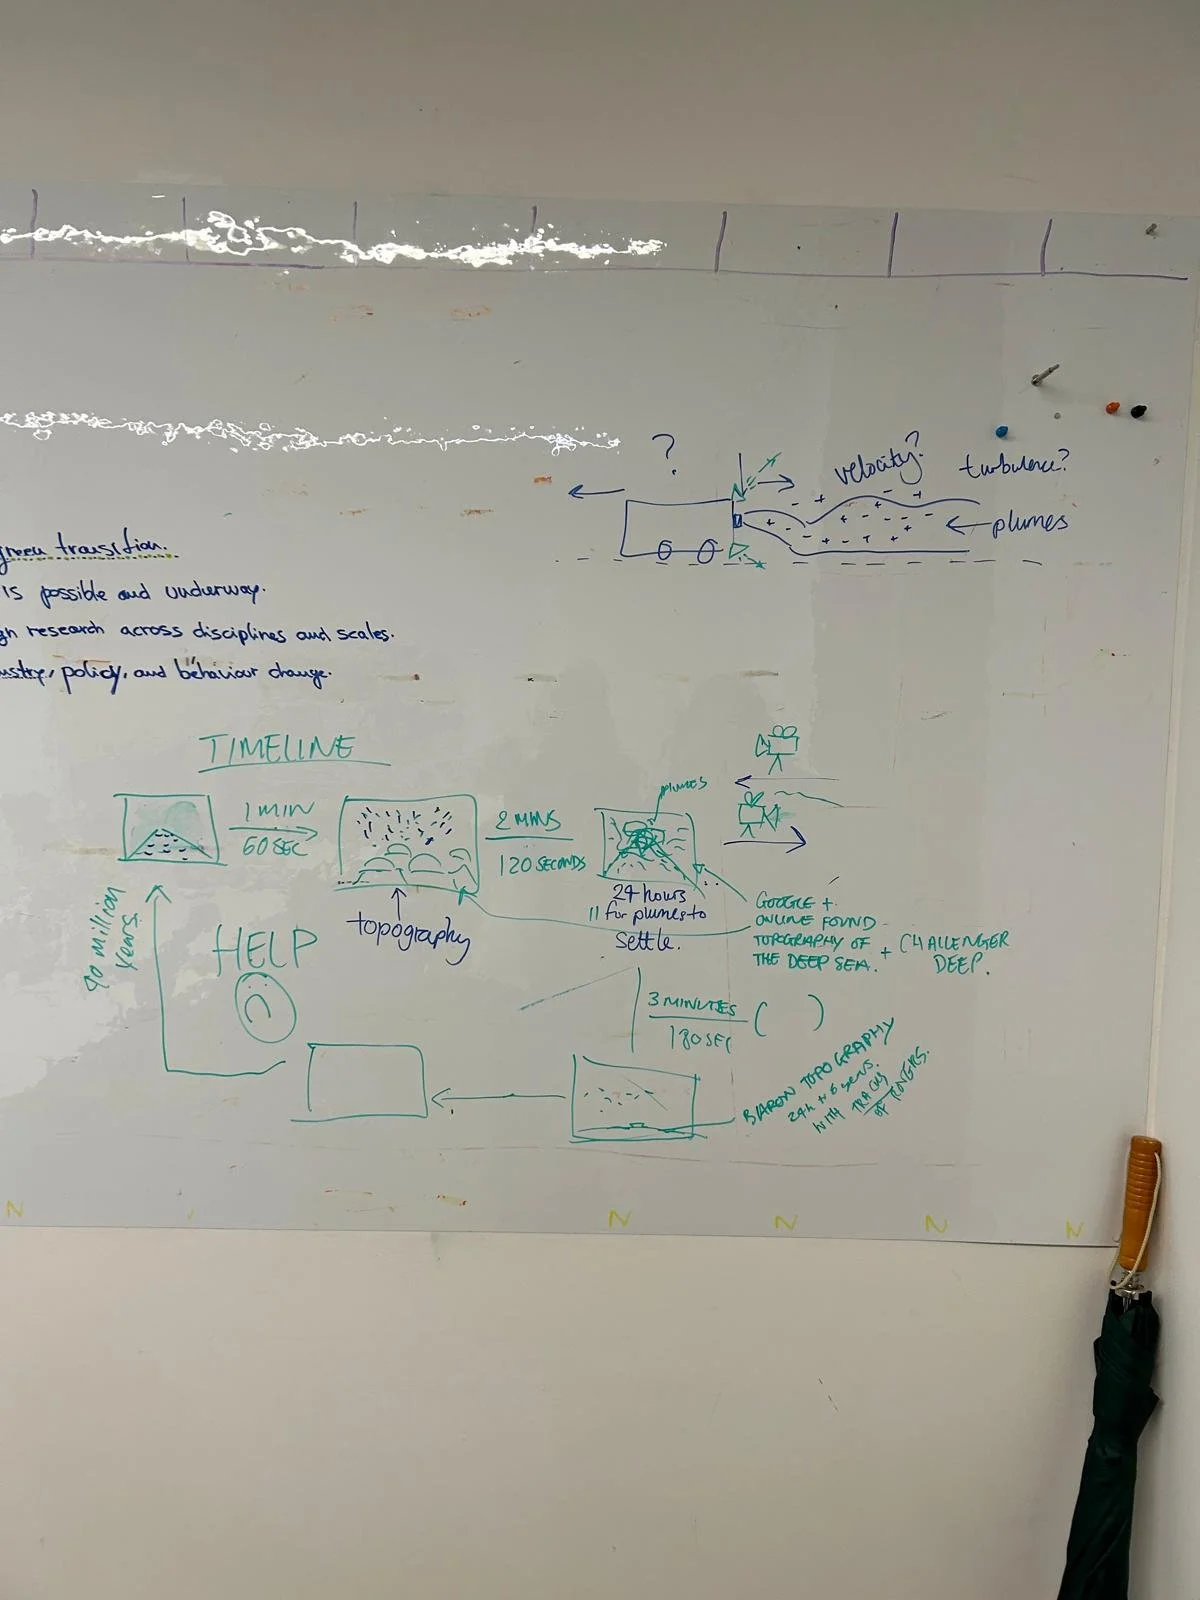 ?
velocity?
turbulence?
plumes
green transition.
is possible and underway.
gn research across disciplines and scales.
ustry, policy, and behaviour change.
TIMELINE
1 MIN
60 SEC
2 MINS
120 SECONDS
PLUMES
topography
24 hours
11 for plumes to
settle.
GOOGLE +
ONLINE FOUND
TOPOGRAPHY OF
THE DEEP SEA.
+ CHALLENGER
DEEP.
90 million
years
HELP
3 MINUTES
180 SEC
( )
BARON TOPOGRAPHY
24h to 6 years.
WITH TRACKS
OF
N
N
N
N
N